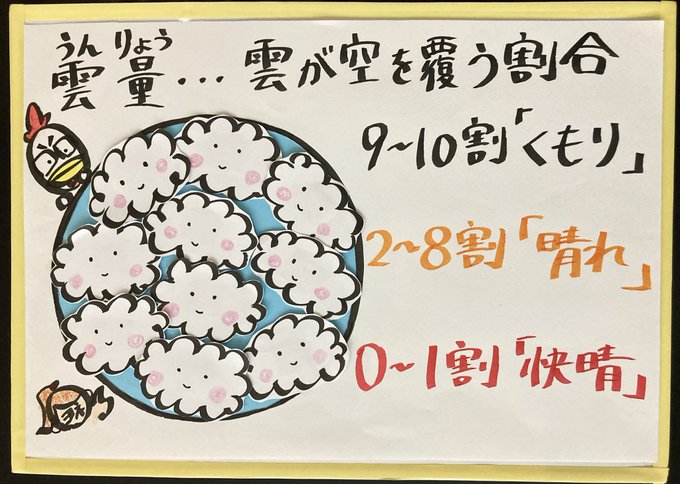 うんりょう
雲量...雲が空を覆う割合
9~10割「くもり」
2~8割「晴れ」
0~1割「快晴」